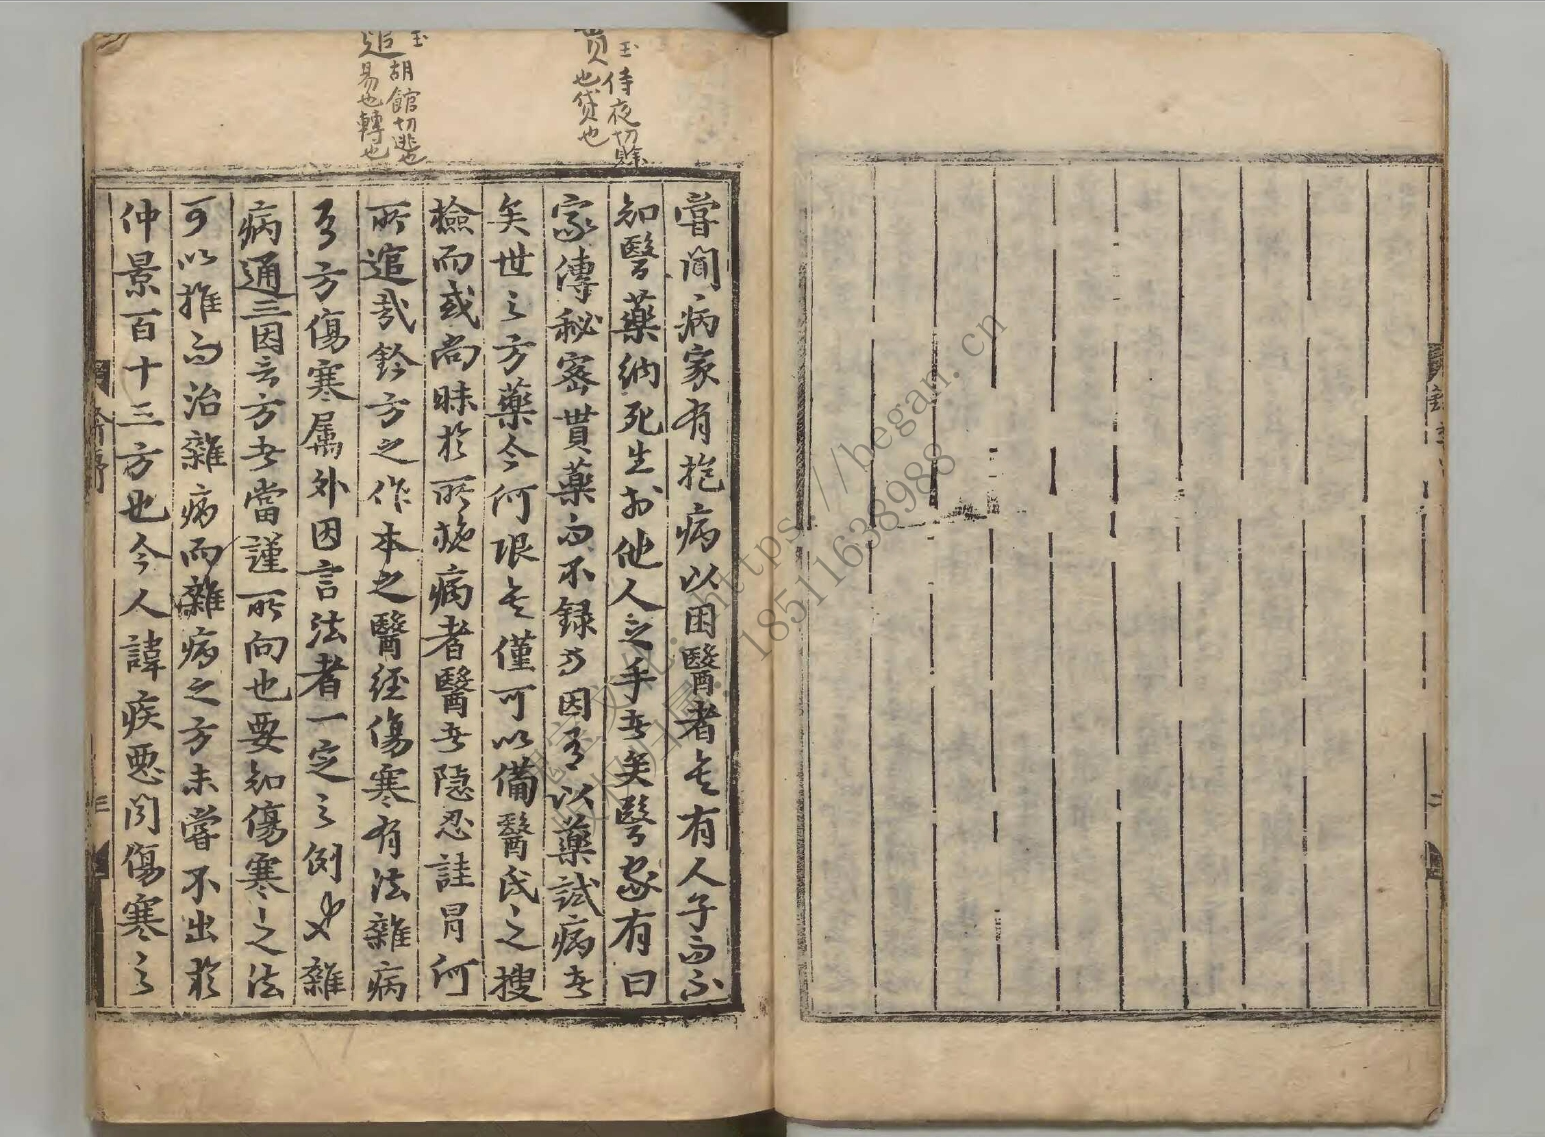 嘗聞病家有抱病以困醫者无有人子而不
知醫藥納死生於他人之手者矣醫家有曰
家傳秘密貰藥而不録方因有以藥試病者
矣世之方藥今何限无僅可以備醫氏之搜
檢而或尚昧於所施病者醫者隐忍詿胃何
所逭哉鈐方之作本之醫經傷寒有法雜病
有方傷寒属外因言法者一定之例也雜
病通三因言方者當謹所向也要知傷寒之法
可以推而治雜病而雜病之方未嘗不出於
仲景百十三方也今人諱疾惡聞傷寒之
貰
玉
侍夜切賒
也贷也
逭
玉
胡館切逃也
易也轉也
序
三
二
https://hegan.cn
18511638988